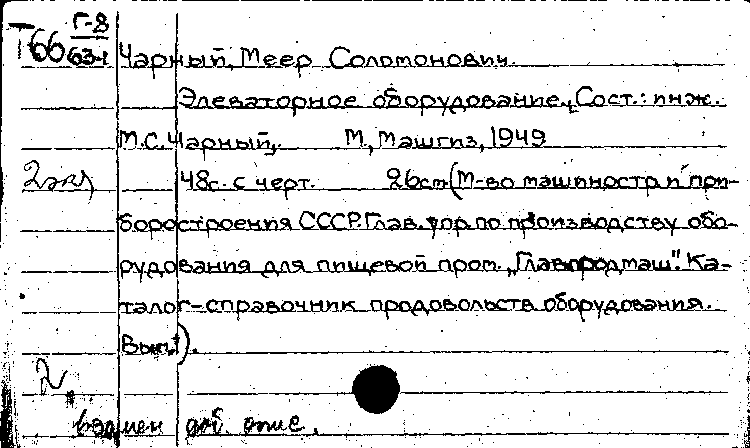 Г-8
Т66 63-1 Чарный, Меер Соломонович.
Элеваторное оборудование. Сост.: инж.
М.С. Чарный, М, Машгиз, 1949
2 экз 48с. с черт. 26см (М-во машиностр и при-
боростроения СССР. Глав. упр. по производству обо-
рудования для пищевой пром. „Главпродмаш". Ка-
талог-справочник продовольств оборудования.
Вып. 1).
2
взамен доб. опис.